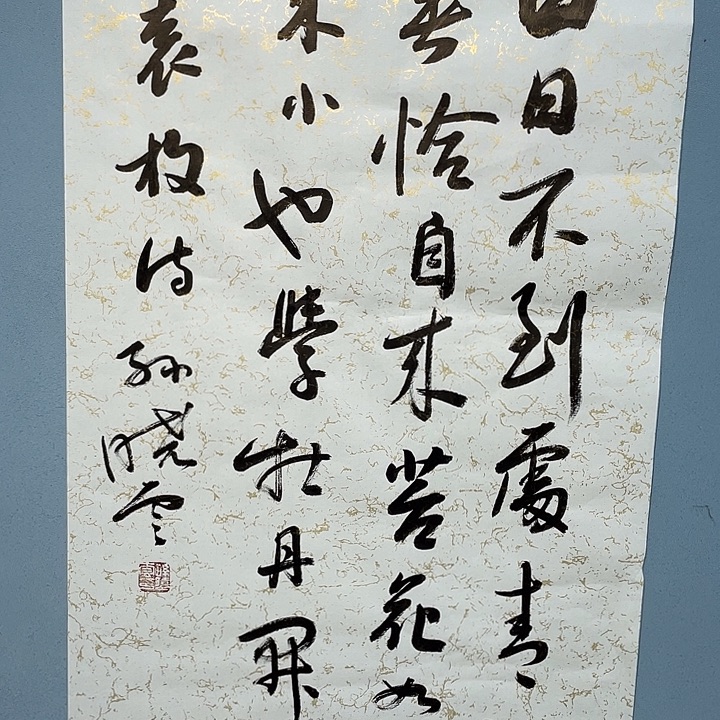 白日不到處青
春恰自来苔花如
米小也學牡丹開
袁枚詩孫曉雲